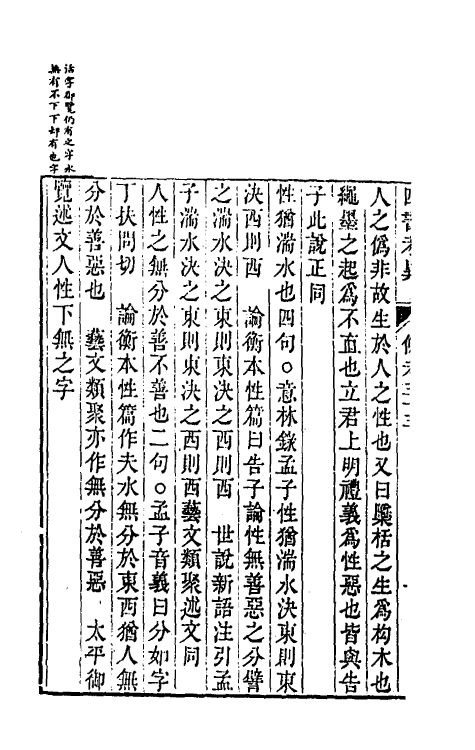 四書考異
人之偽非故生於人之性也又曰櫽栝之生為枸木也
繩墨之起為不直也立君上明禮義為性惡也皆與告
子此說正同
性猶湍水也四句○意林錄孟子性猶湍水決東則東
決西則西　論衡本性篇曰告子論性無善惡之分譬
之湍水決之東則東決之西則西　世說新語注引孟
子湍水決之東則東決之西則西藝文類聚述文同
人性之無分於善不善也二句○孟子音義曰分如字
丁扶問切　論衡本性篇作夫水無分於東西猶人無
分於善惡也　藝文類聚亦作無分於善惡　太平御
覽述文人性下無之字
活字御覽仍有之字水
無有不下下却有也字